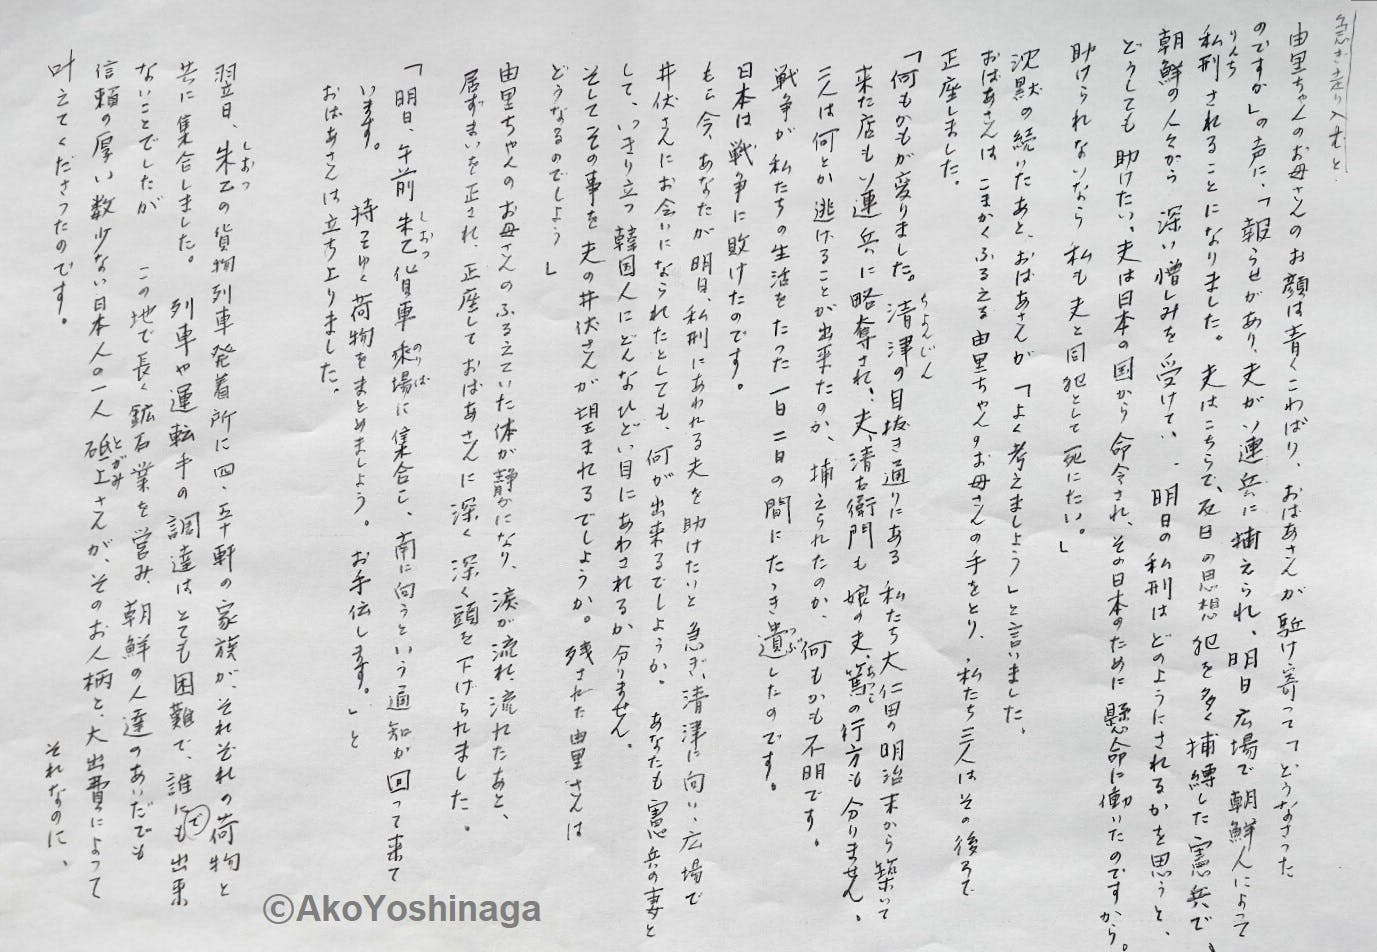 急ぎ走り入むと
由里ちゃんのお母さんのお顔は青くこわばり、おばあさんが駈け寄って「どうなさった
のですか」の声に、「報らせがあり、夫がソ連兵に捕えられ、明日広場で朝鮮人によって
私刑されることになりました。夫はこちらで、反日の思想犯を多く捕縛した憲兵で、
りんち
朝鮮の人々から深い憎しみを受けて、明日の私刑はどのようにされるかを思うと、
どうしても助けたい、夫は日本の国から命令され、その日本のために懸命に働いたのですから。
助けられないなら私も夫と同犯として死にたい。」
沈黙の続いたあと、おばあさんが「よく考えましょう」と言いました、
おばあさんはこまかくふるえる由里ちゃんのお母さんの手をとり、私たち三人はその後ろで
正座しました。
「何もかもが変りました。清津の目抜き通りにある私たち大仁田の明治末から築いて
ちよんじん
来た店もソ連兵に略奪され、夫、清右衛門も娘の夫、篤の行方も分りません。
あつし
二人は何とか逃げることが出来たのか、捕えられたのか、何もかも不明です。
戦争が私たちの生活をたった一日二日の間にたたき遺したのです。
つぶ
日本は戦争に敗けたのです。
もし今あなたが明日、私刑にあわれる夫を助けたいと急ぎ、清津に向い、広場で
井伏さんにお会いになられたとしても、何が出来るでしようか。あなたも憲兵の妻と
して、いきり立つ韓国人にどんなひどい目にあわされるか分りません。
そしてその事を夫の井伏さんが望まれるでしようか。残された由里さんは
どうなるのでしよう」
由里ちゃんのお母さんのふるえていた体が静かになり、涙が流れ、流れたあと、
居ずまいを正され、正座しておばあさんに深く深く頭を下げられました。
「明日、午前朱乙貨車乗場に集合し、南に向うという通知が回って来て
しおつ
のりば
います。持ってゆく荷物をまとめましょう。お手伝します。」と
おばあさんは立ち上りました。
翌日、朱乙の貨物列車発着所に四・五十軒の家族が、それぞれの荷物と
しおつ
共に集合しました。列車や運転手の調達はとても困難で、誰にも出来
で
ないことでしたが この地で長く鉱石業を営み、朝鮮の人達のあいだでも
信頼の厚い数少ない日本人の一人砥上さんが、そのお人柄と、大出費によって
とがみ
叶えてくださったのです。
それなのに、
©AkoYoshinaga